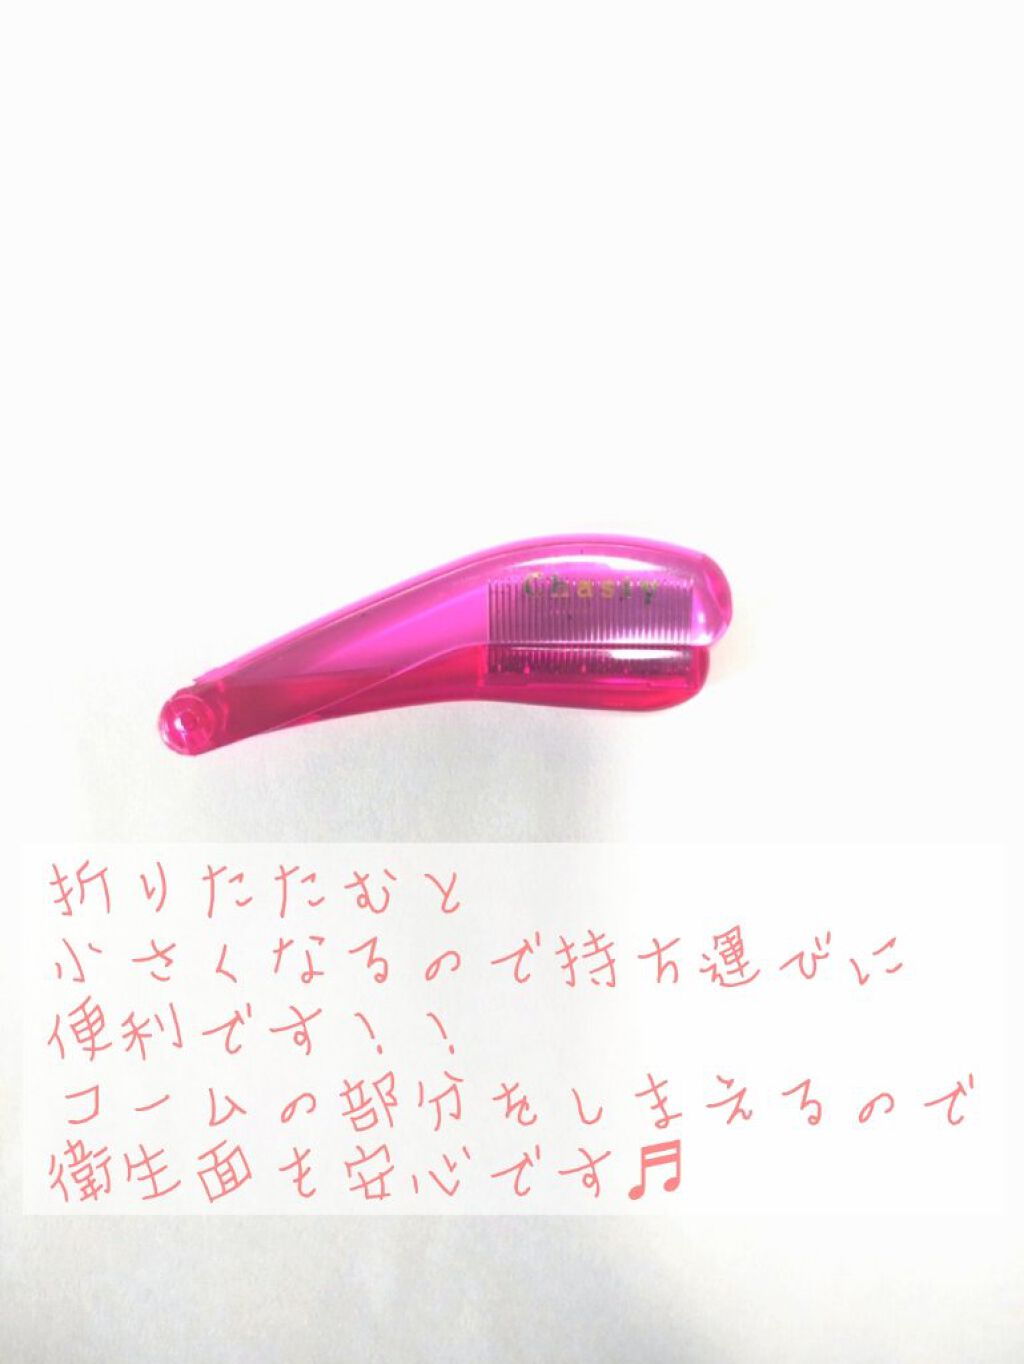 Chasty
折りたたむと
小さくなるので持ち運びに
便利です！！
コームの部分をしまえるので
衛生面も安心です🎵